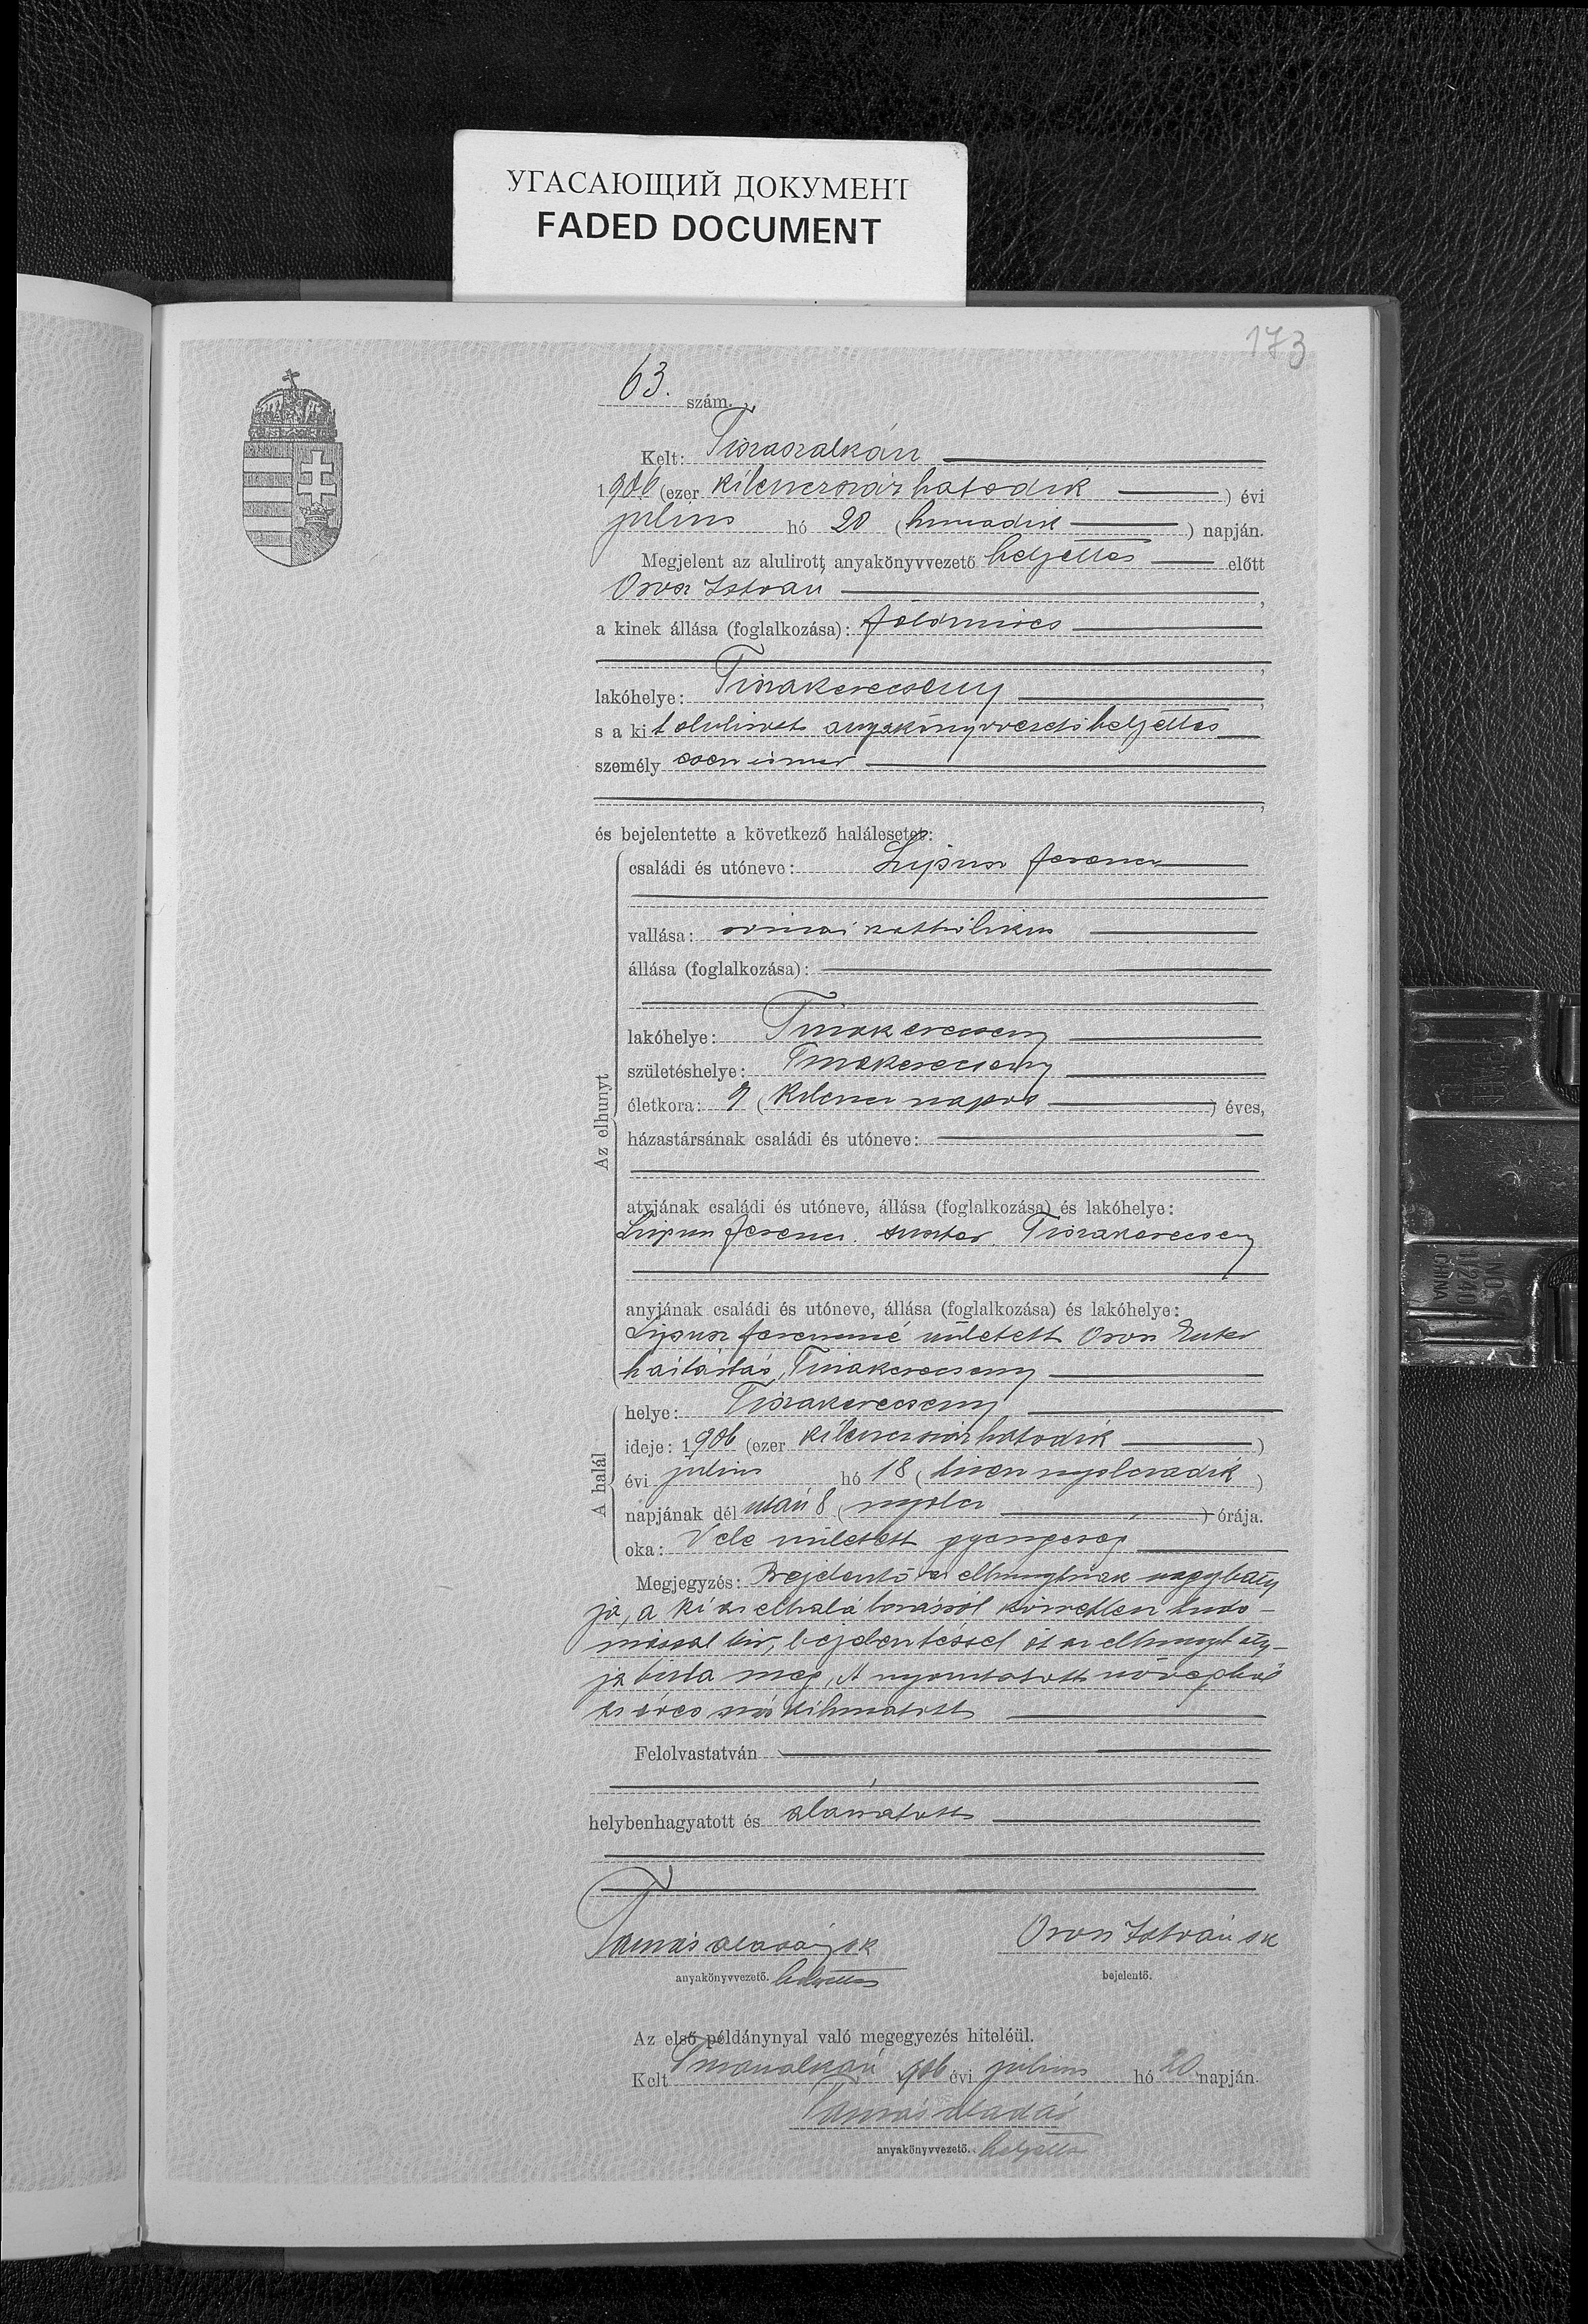 УГАСАЮЩИЙ ДОКУМЕНТ
FADED DOCUMENT
173
63. szám.
Kelt: Tiszaszalkán
1906 (ezer kilenczszázhatodik) évi
julius hó 20 (huszadik) napján.
Megjelent az alulirott anyakönyvvezető helyettes előtt
István
a kinek állása (foglalkozása): földmives
lakóhelye: Tiszakerecseny
s a kit alulirott anyakönyvvezető helyettes
személyesen ismer
és bejelentette a következő halálesetet:
Az elhunyt
családi és utóneve: Lipusz Ferencz
vallása: római katholikus
állása (foglalkozása):
lakóhelye: Tiszakerecseny
születéshelye: Tiszakerecseny
életkora: 9 (kilencz napos) éves,
házastársának családi és utóneve:
atyjának családi és utóneve, állása (foglalkozása) és lakóhelye:
Lipusz Ferencz suszter Tiszakerecseny
anyjának családi és utóneve, állása (foglalkozása) és lakóhelye:
Lipusz Ferenczné született Eszter
háztartás, Tiszakerecseny
A halál
helye: Tiszakerecseny
ideje: 1906 (ezer kilenczszázhatodik)
évi julius hó 18 (tizennyolczadik)
napjának dél után 8 (nyolcz) órája.
oka: Vele született gyengeség
Megjegyzés: Bejelentő az elhunytnak nagybáty
ja, a ki az elhalálozásról közvetlen tudo-
mással bir, bejelentéssel őt az elhunyt aty-
ja bizta meg, A nyomtatott szövegből
az éves szó kihuzatott
Felolvastatván
helybenhagyatott és aláiratott
Tamás Aladár sk
István sk
anyakönyvvezető. helyettes
bejelentő.
Az első példánynyal való megegyezés hiteléül.
Kelt Tiszaszalkán 1906 évi julius hó 20 napján.
Tamás Aladár
anyakönyvvezető. helyettes
NO.
11240
CHINA